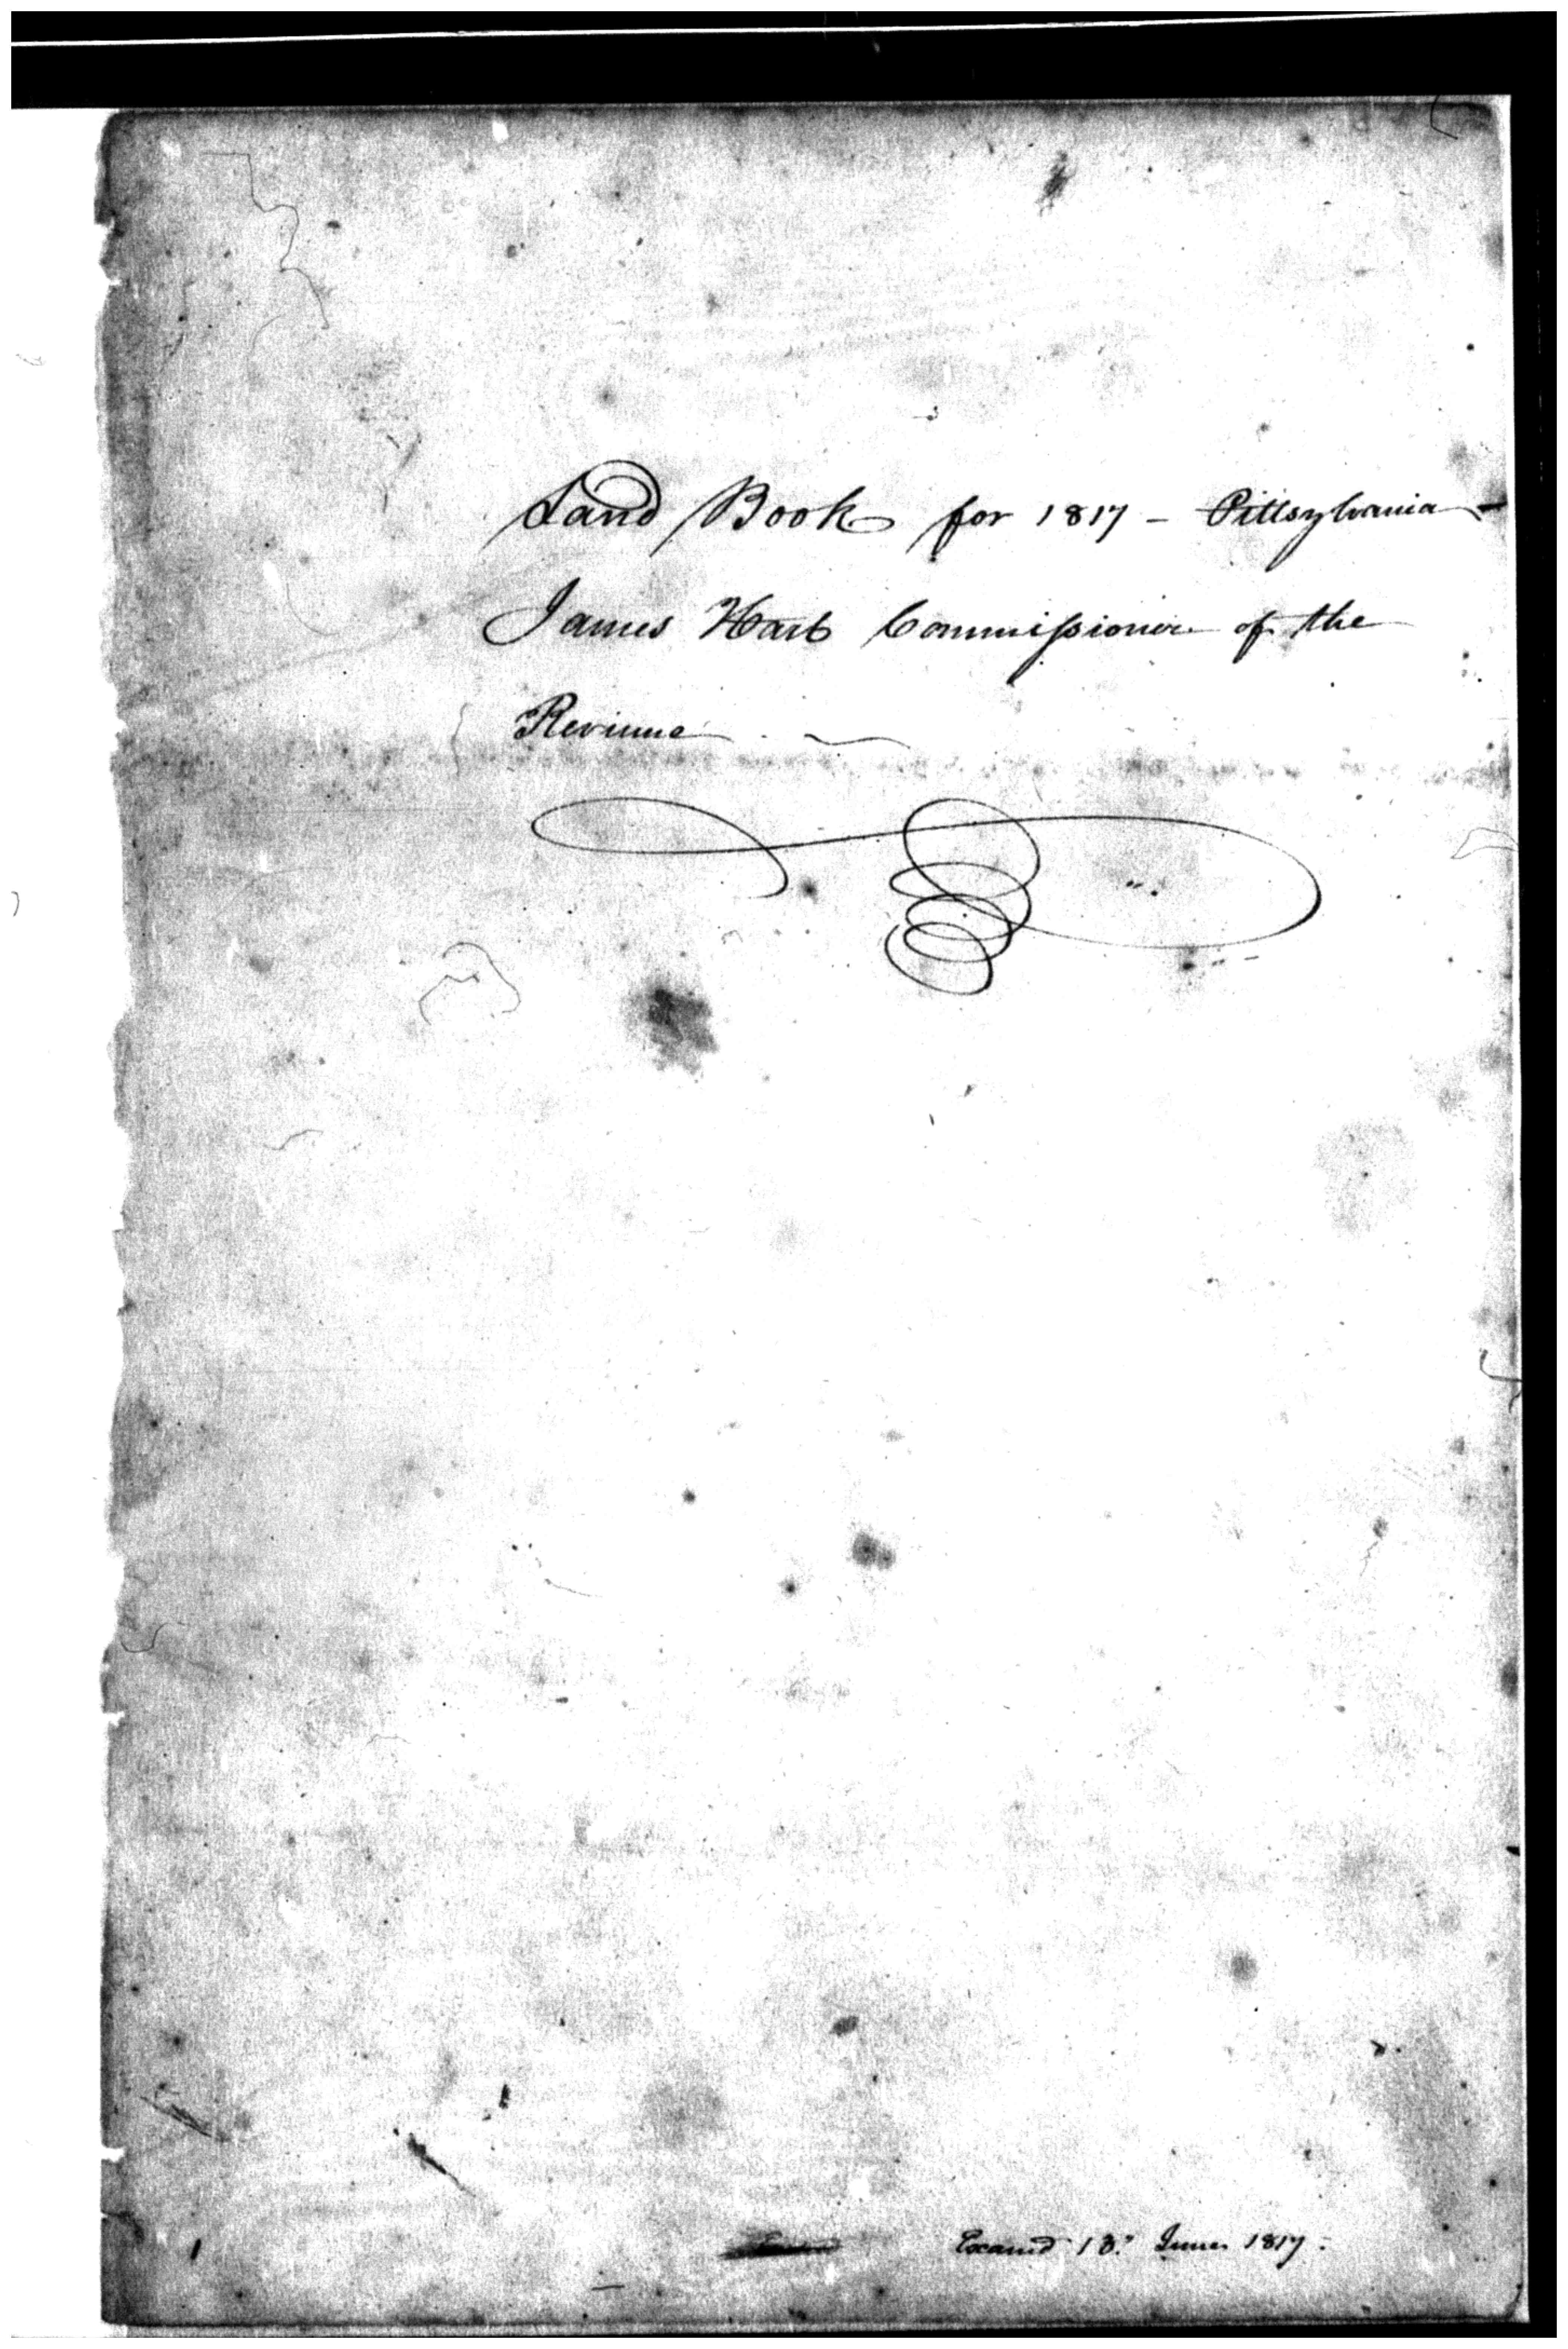 Land Book for 1817 - Pittsylvania -
James Hart Commissioner of the
Revenue
Examd 13th June 1817 -